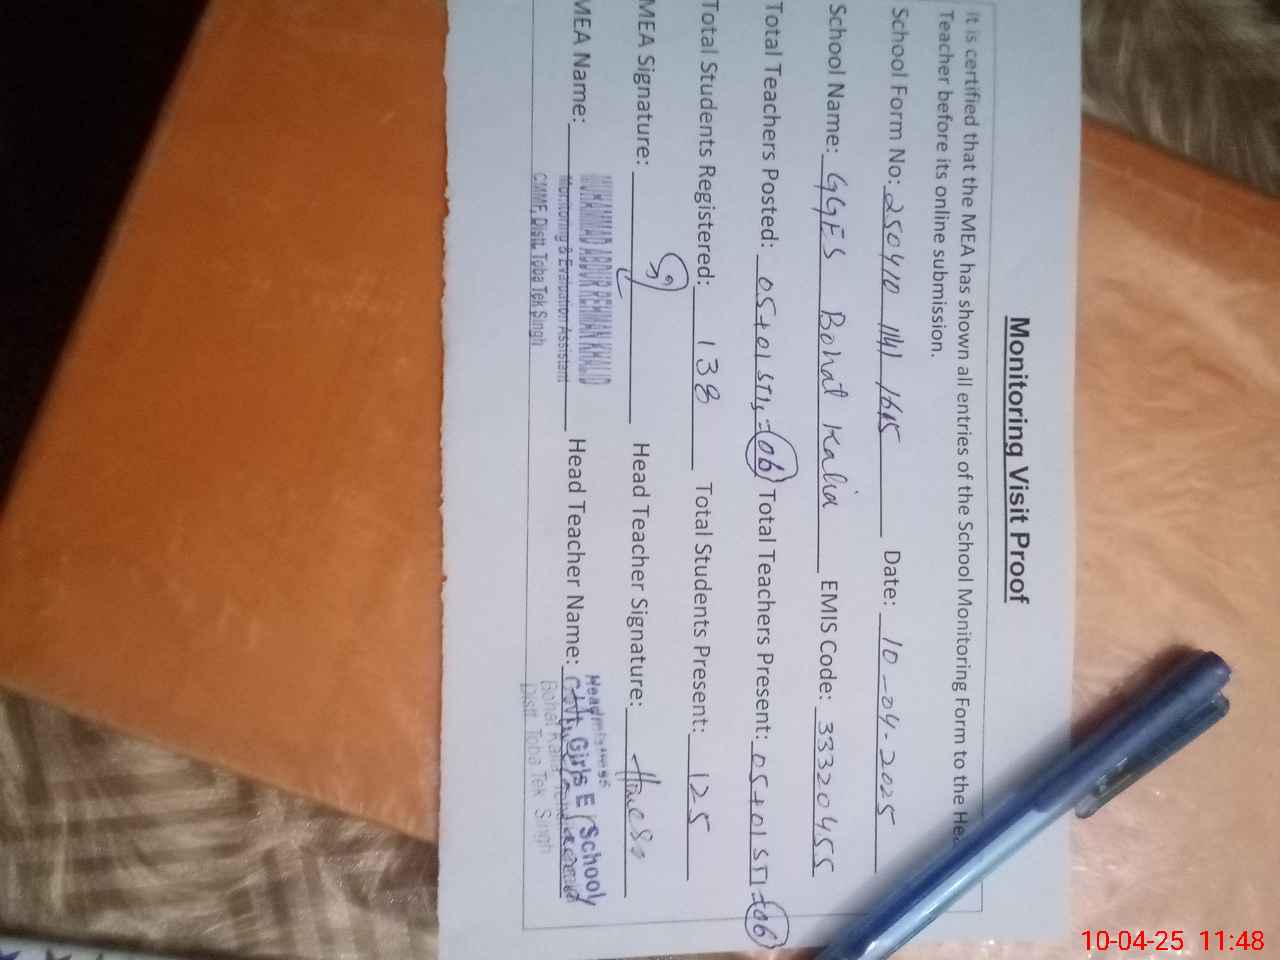 Monitoring Visit Proof
It is certified that the MEA has shown all entries of the School Monitoring Form to the Hea
Teacher before its online submission.
School Form No: 250410 1141 1615 Date: 10-04-2025
School Name: GGES Bohat Kalia EMIS Code: 33320455
Total Teachers Posted: 05+01 STI = 06 Total Teachers Present: 05+01 STI = 06
Total Students Registered: 138 Total Students Present: 125
MEA Signature: Head Teacher Signature:
MEA Name: MUHAMMAD ABDUR REHMAN KHALID Head Teacher Name: Headmistress
Monitoring & Evaluation Assistant Govt. Girls E/School
CMMF, Distt. Toba Tek Singh Bohat Kalia
Distt. Toba Tek Singh
10-04-25 11:48